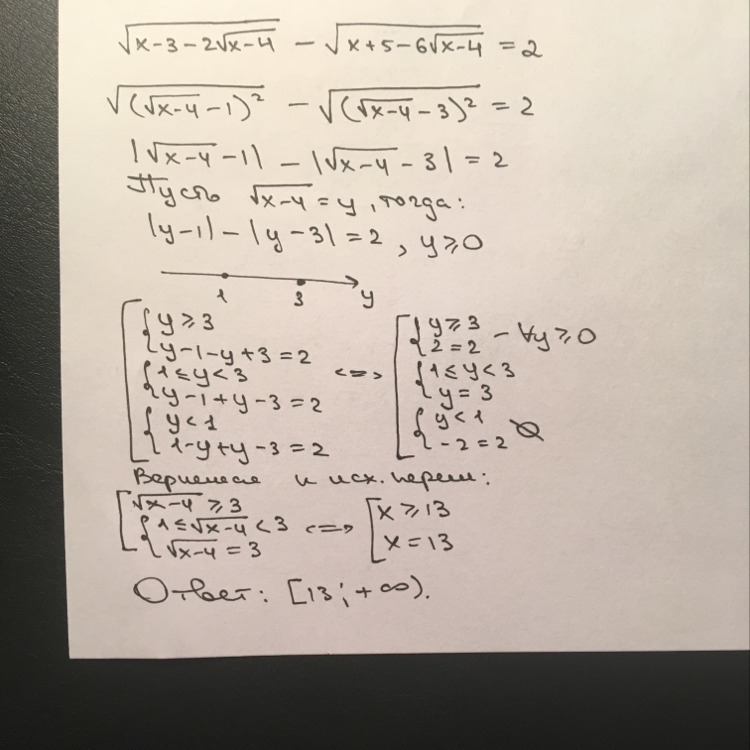 √(x-3-2√(x-4)) - √(x+5-6√(x-4)) = 2
√((√(x-4)-1)²) - √((√(x-4)-3)²) = 2
|√(x-4)-1| - |√(x-4)-3| = 2
Пусть √(x-4) = y, тогда:
|y-1|-|y-3|=2, y⩾0
1 3 y
[ { y⩾3 [ { y⩾3
{ y-1-y+3=2 { 2=2 - ∀y⩾0
{ 1⩽y<3 <=> { 1⩽y<3
{ y-1+y-3=2 { y=3
{ y<1 { y<1
{ 1-y+y-3=2 { -2=2 ∅
Вернемся к исх. перем:
[ √(x-4) ⩾3 [ x⩾13
{ 1⩽√(x-4)<3 <=>
{ √(x-4)=3 x=13
Ответ: [13;+∞).